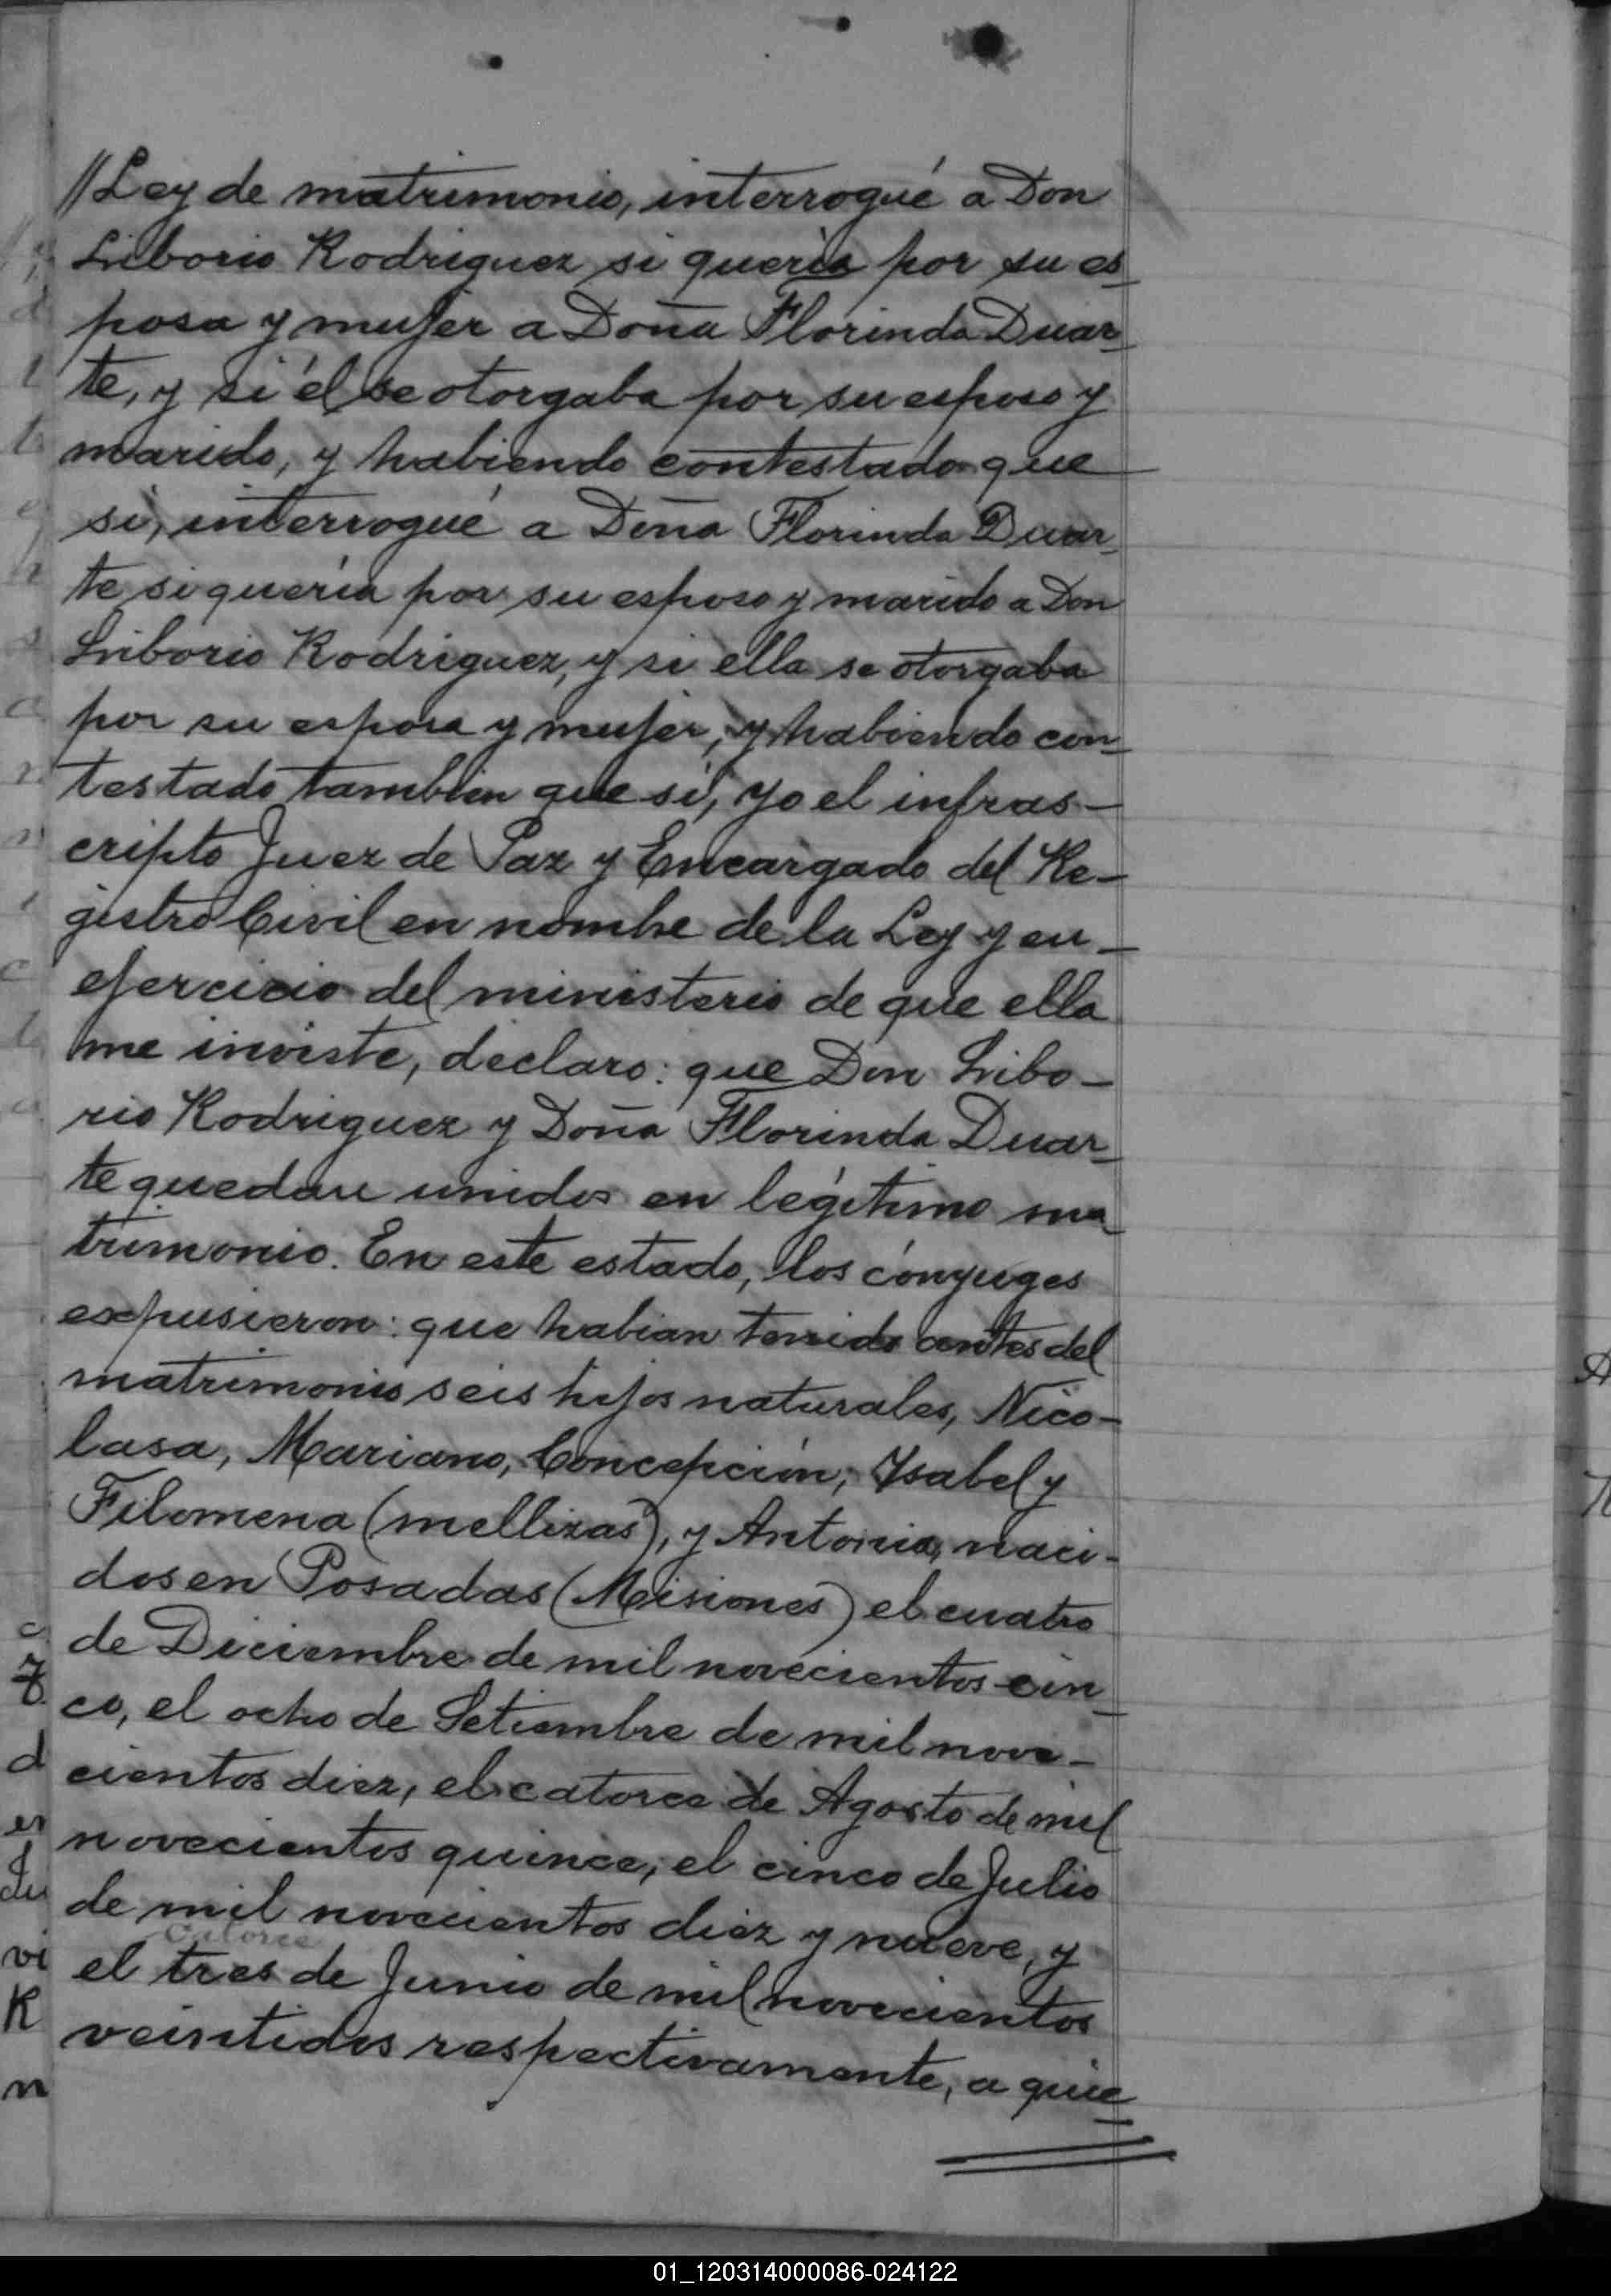 //Ley de matrimonio, interrogué a Don
Liborio Rodriguez si quería por su es-
posa y mujer a Doña Florinda Duar-
te, y si él se otorgaba por su esposo y
marido, y habiendo contestado que
si, interrogué a Doña Florinda Duar-
te si quería por su esposo y marido a Don
Liborio Rodriguez, y si ella se otorgaba
por su esposa y mujer, y habiendo con-
testado tambien que sí, yo el infras-
cripto Juez de Paz y Encargado del Re-
gistro Civil en nombre de la Ley y en
ejercicio del ministerio de que ella
me inviste, declaro: que Don Libo-
rio Rodriguez y Doña Florinda Duar-
te quedan unidos en legítimo ma-
trimonio. En este estado, los cónyuges
expusieron: que habian tenido antes del
matrimonio seis hijos naturales, Nico-
lasa, Mariano, Concepción, Ysabel y
Filomena (mellizas), y Antonia, naci-
dos en Posadas (Misiones) el cuatro
de Diciembre de mil novecientos cin-
co, el ocho de Setiembre de mil nove-
cientos diez, el catorce de Agosto de mil
novecientos quince, el cinco de Julio
de mil novecientos diez y nueve, y
catorce
el tres de Junio de mil novecientos
veintidos respectivamente, a quie-
01_120314000086-024122